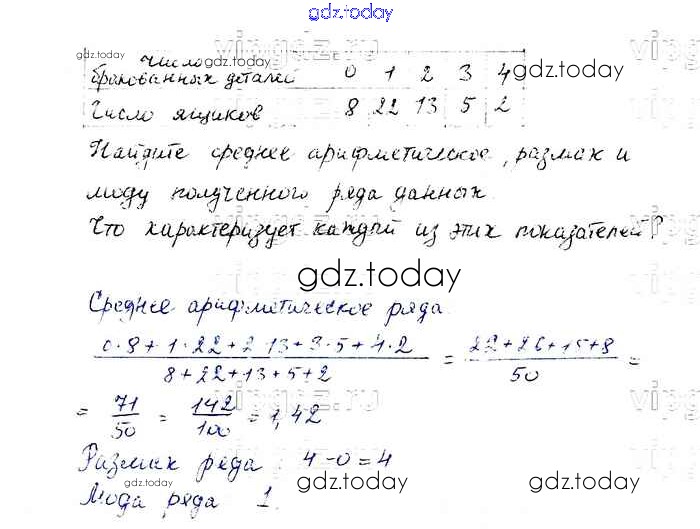 gdz.today
Число
бракованных деталей 0 1 2 3 4
Число ящиков 8 22 13 5 2
Найдите среднее арифметическое, размах и
моду полученного ряда данных.
Что характеризует каждый из этих показателей?
gdz.today
Среднее арифметическое ряда
0·8+1·22+2·13+3·5+4·2 / 8+22+13+5+2 = 22+26+15+8 / 50 =
= 71/50 = 142/100 = 1,42
Размах ряда: 4-0=4
Мода ряда 1.
gdz.today
gdz.today
gdz.today
gdz.today